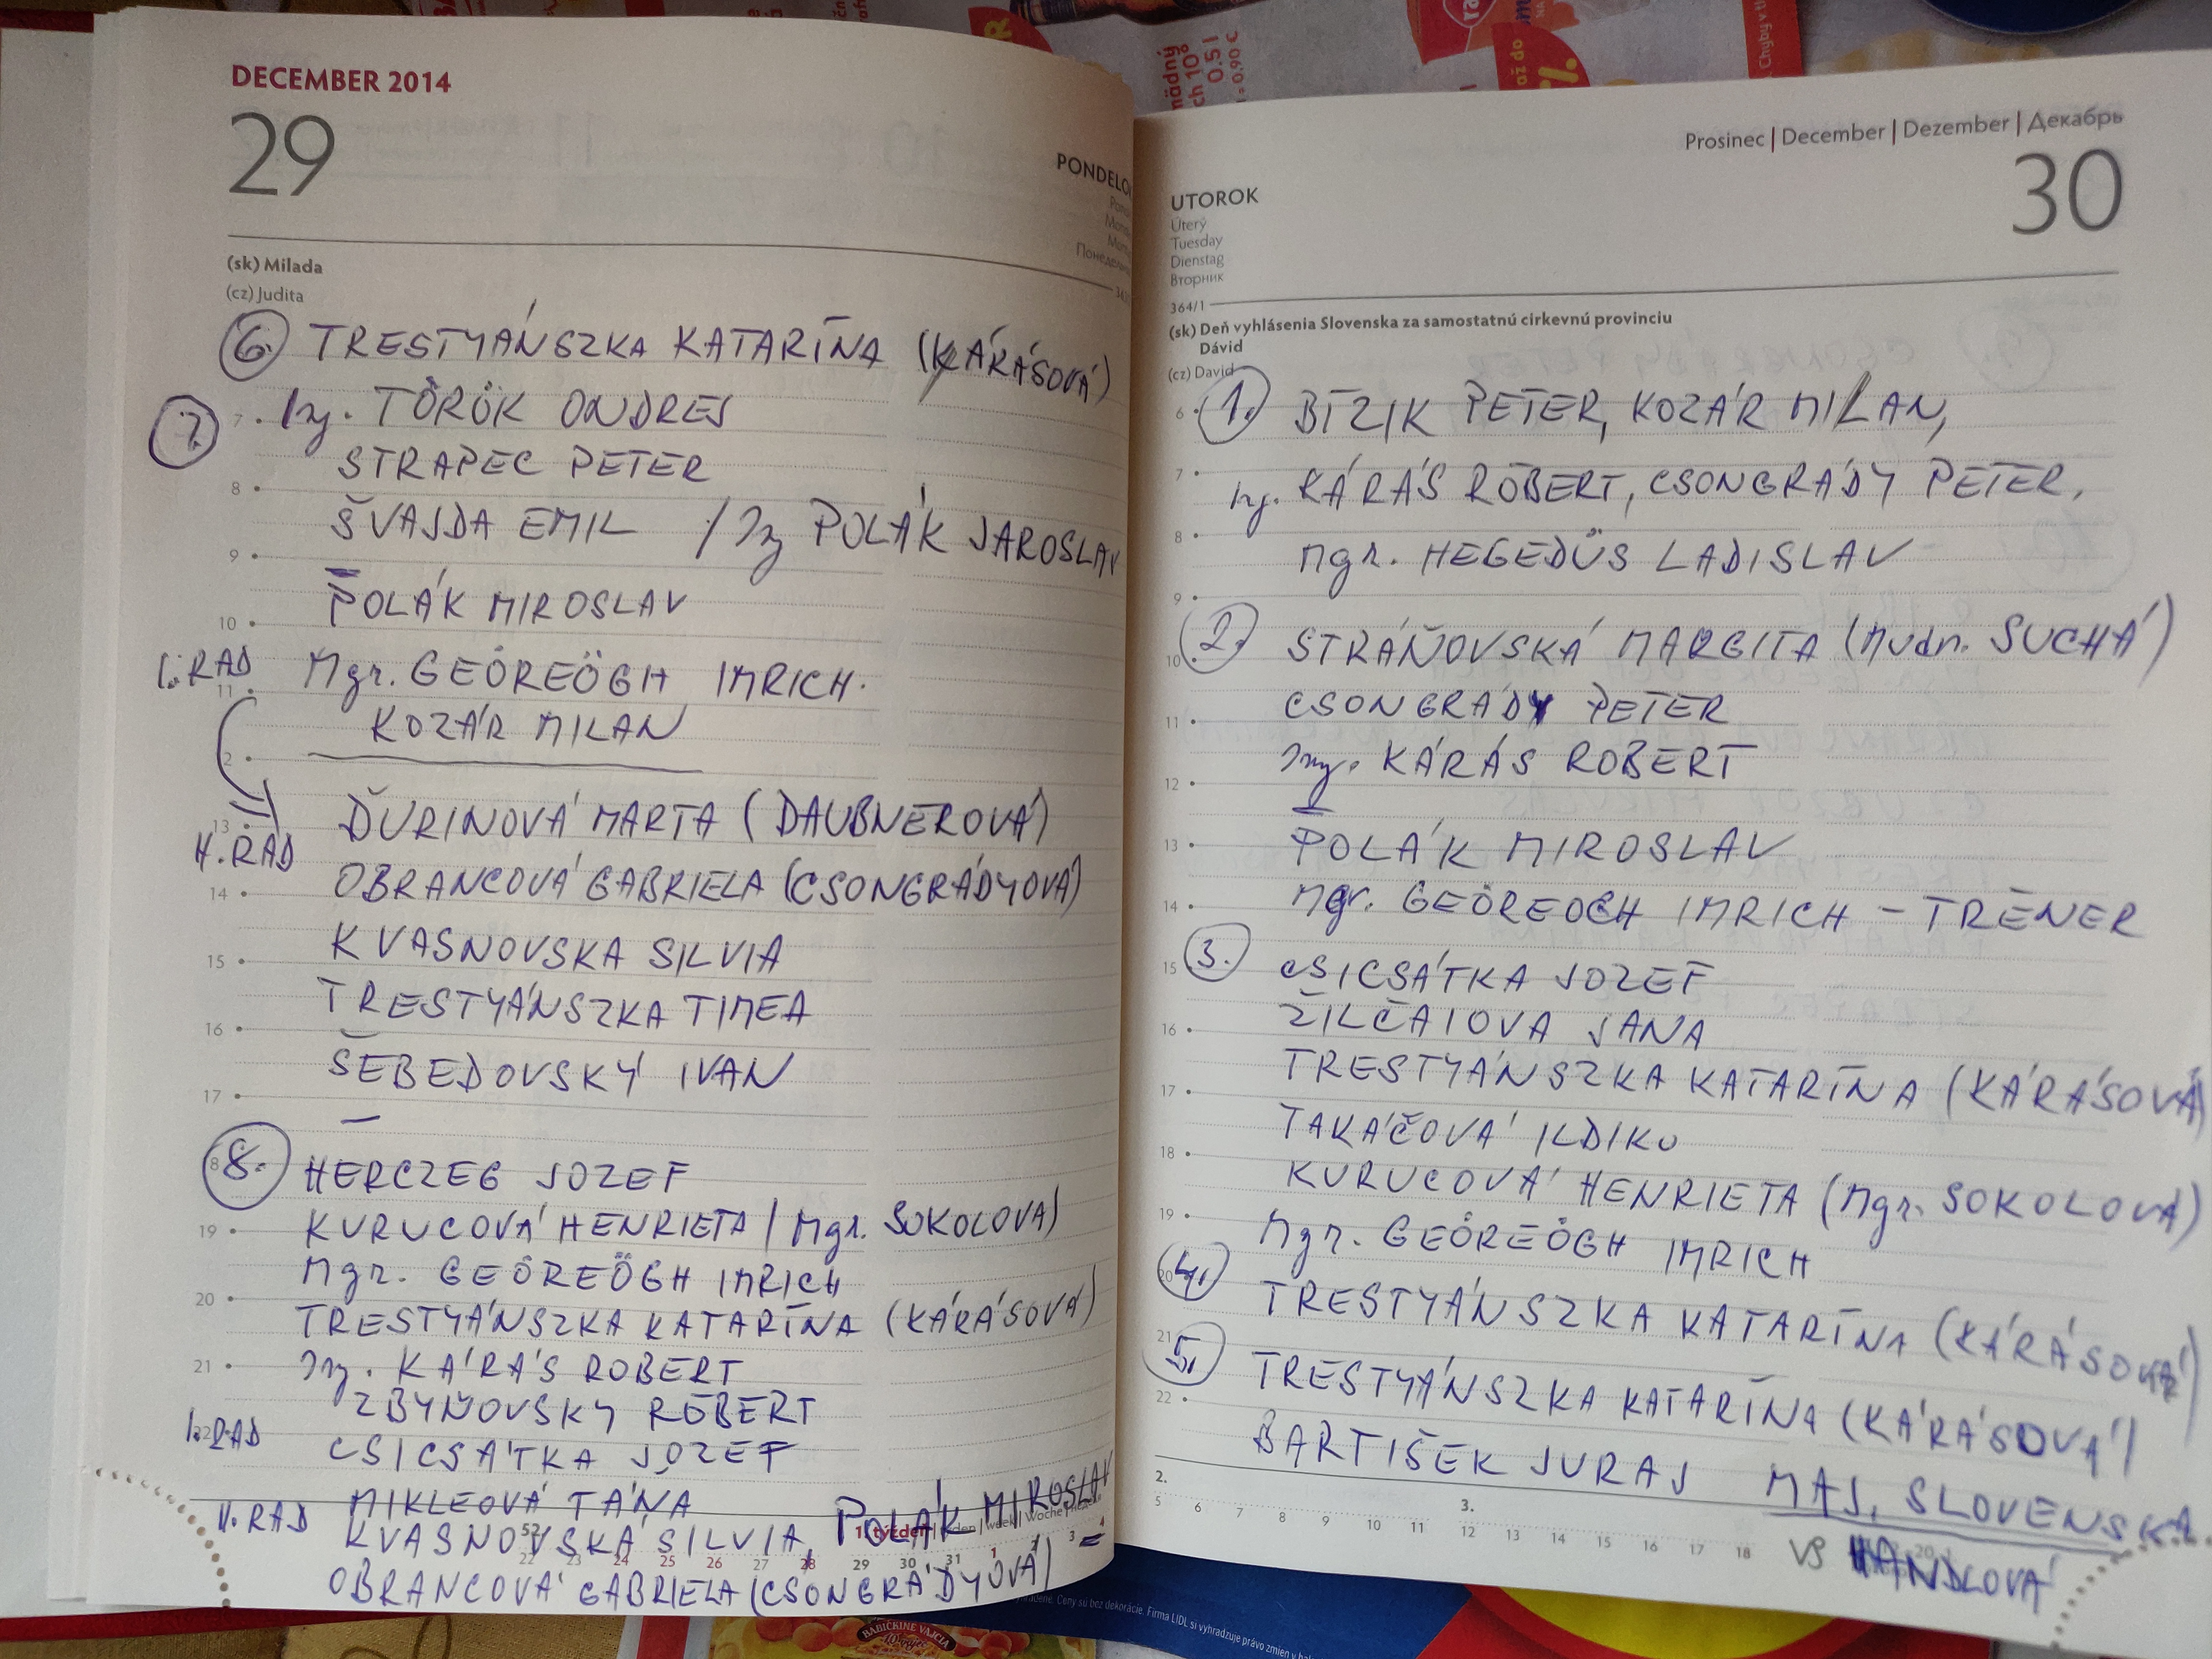 DECEMBER 2014
29
(sk) Milada
(cz) Judita
6. TRESTYÁNSZKA KATARÍNA (KÁRÁSOVÁ)
7. Ing. TÖRÖK ONDREJ
STRAPEC PETER
8
ŠVAJDA EMIL / Ing POLÁK JAROSLAV
9
POLÁK MIROSLAV
10
I. RAD Mgr. GEÖREÖGH IMRICH.
11
KOZÁR MILAN
ĎURINOVÁ MARTA (DAUBNEROVÁ)
13
II. RAD
OBRANCOVÁ GABRIELA (CSONGRÁDYOVÁ)
14
KVASNOVSKA SILVIA
15
TRESTYÁNSZKA TIMEA
16
ŠEBEDOVSKÝ IVAN
17
8. HERCZEG JOZEF
KURUCOVÁ HENRIETA (Mgr. SOKOLOVÁ)
19
Mgr. GEÖREÖGH IMRICH
20
TRESTYÁNSZKA KATARÍNA (KÁRÁSOVÁ)
21 Ing. KÁRÁS ROBERT
ZBYŇOVSKY RÓBERT
I. RAD CSICSÁTKA JOZEF
MIKLEOVÁ TÁŇA
II. RAD KVASNOVSKÁ SILVIA, POLÁK MIROSLAV
52 1. týždeň
22 23 24 25 26 27 28 29 30 31 1 3 4
OBRANCOVÁ GABRIELA (CSONGRÁDYOVÁ)
Prosinec | December | Dezember | Декабрь
30
UTOROK
Úterý
Tuesday
Dienstag
Вторник
364/1
(sk) Deň vyhlásenia Slovenska za samostatnú cirkevnú provinciu
Dávid
(cz) David
6 1. BÍZIK PETER, KOZÁR MILAN,
7
Ing. KÁRÁS RÓBERT, CSONGRÁDY PETER,
8
Mgr. HEGEDÜS LADISLAV
9
2. STRÁŇOVSKÁ MARGITA (Mudr. SUCHÁ)
10
CSONGRÁDY PETER
11
Ing. KÁRÁS ROBERT
12
POLÁK MIROSLAV
13
Mgr. GEÖREOGH IMRICH – TRÉNER
14
3. CSICSÁTKA JOZEF
15
ŽILČAIOVA JANA
16
TRESTYÁNSZKA KATARÍNA (KÁRÁSOVÁ)
17
TAKÁČOVÁ ILDIKO
18
KURUCOVÁ HENRIETA (Mgr. SOKOLOVÁ)
19
Mgr. GEÖREÖGH IMRICH
20
4. TRESTYÁNSZKA KATARÍNA (KÁRÁSOVÁ)
21
5. TRESTYÁNSZKA KATARÍNA (KÁRÁSOVÁ)
22
BARTIŠEK JURAJ MAJ. SLOVENSKA
VS HANDLOVÁ
2. 3.
5 6 7 8 9 10 11 12 13 14 15 16 17 18
BABIČKINE VAJCIA
Ceny sú bez dekorácie. Firma LIDL si vyhradzuje právo zmien